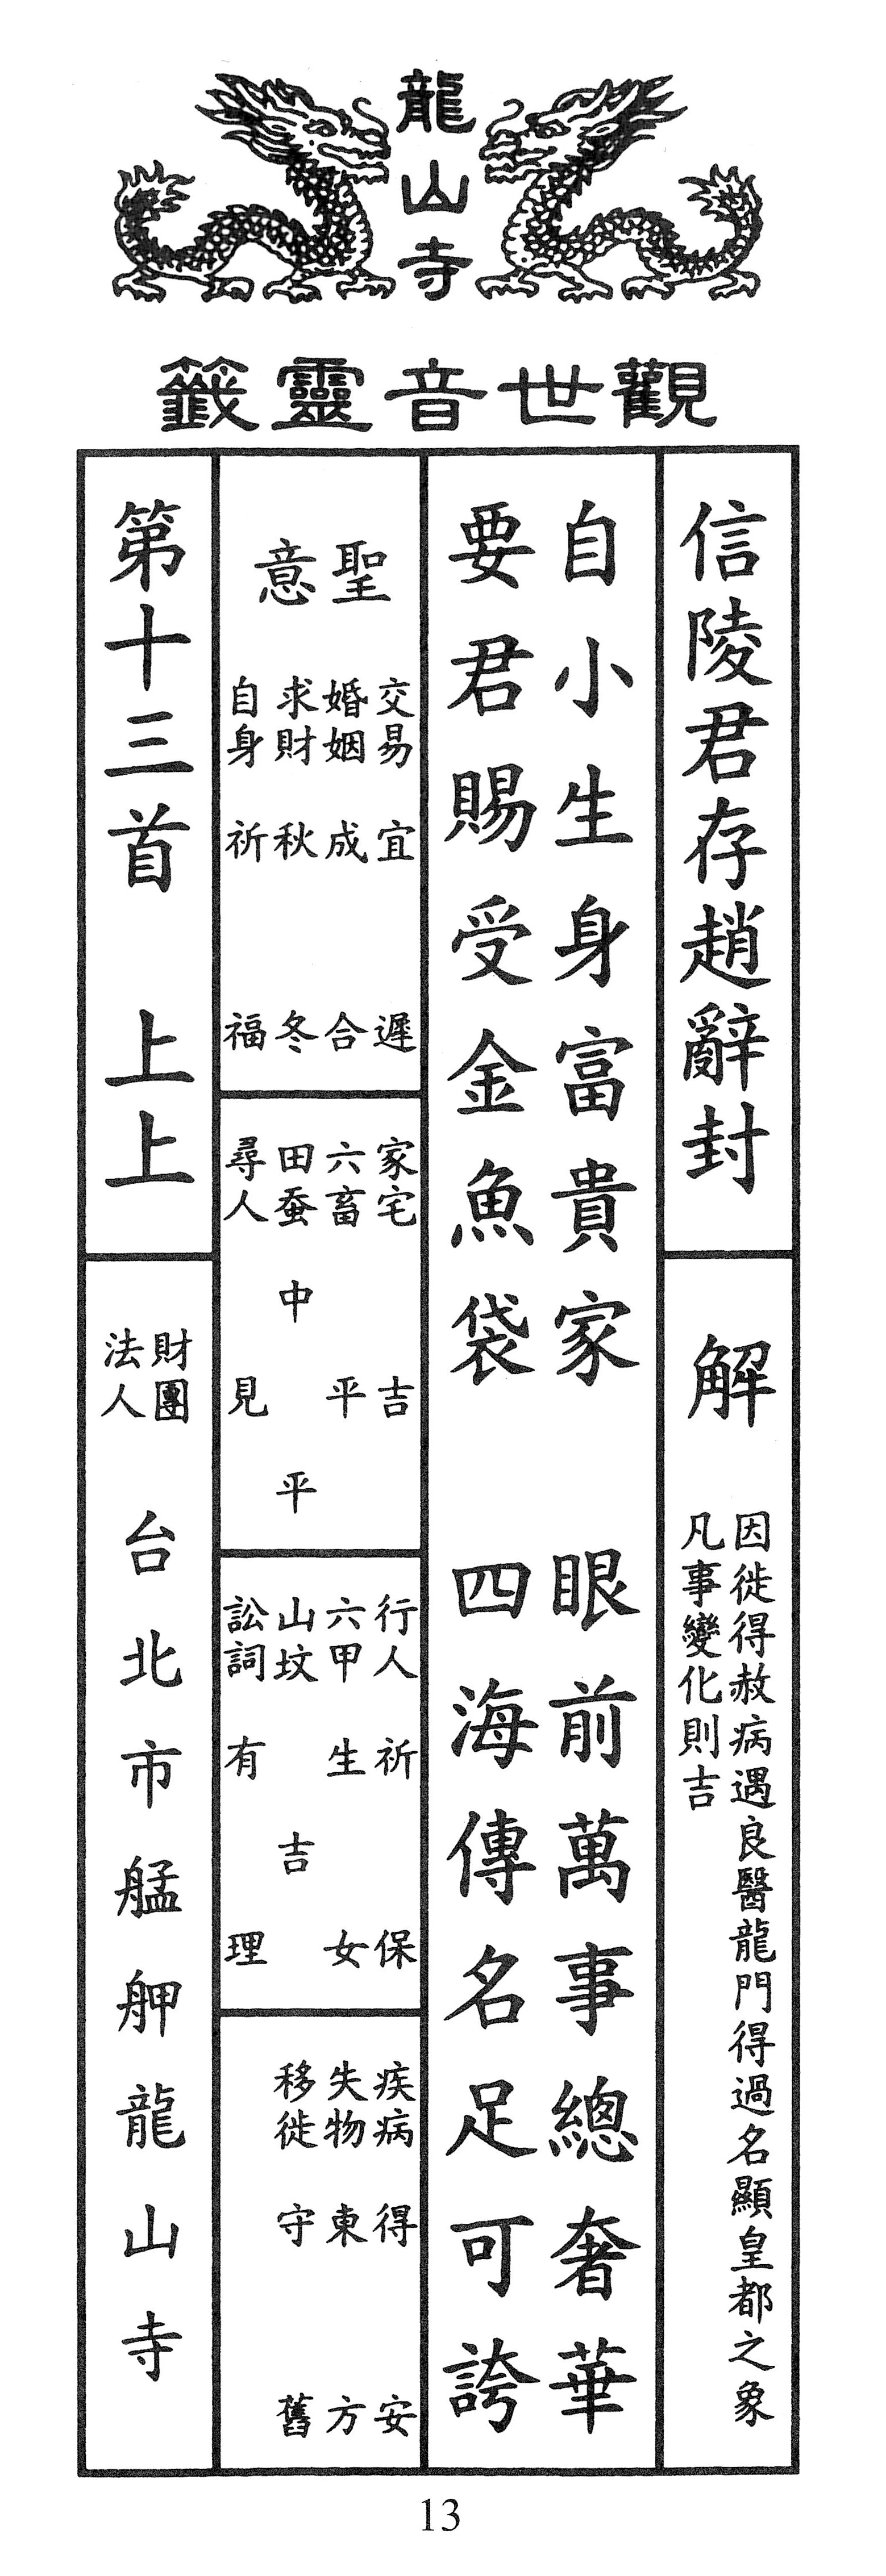 龍山寺
觀世音靈籤
信陵君存趙辭封
解
因徙得赦病遇良醫龍門得過名顯皇都之象
凡事變化則吉
自小生身富貴家 眼前萬事總奢華
要君賜受金魚袋 四海傳名足可誇
聖意
交易 宜遲
婚姻 成合
求財 秋冬
自身 祈福
家宅 吉
六畜 平
田蚕 中平
尋人 見
行人 祈保
六甲 生女
山坟 吉
訟詞 有理
疾病 得安
失物 東方
移徙 守舊
第十三首 上上
財團
法人
台北市艋舺龍山寺
13